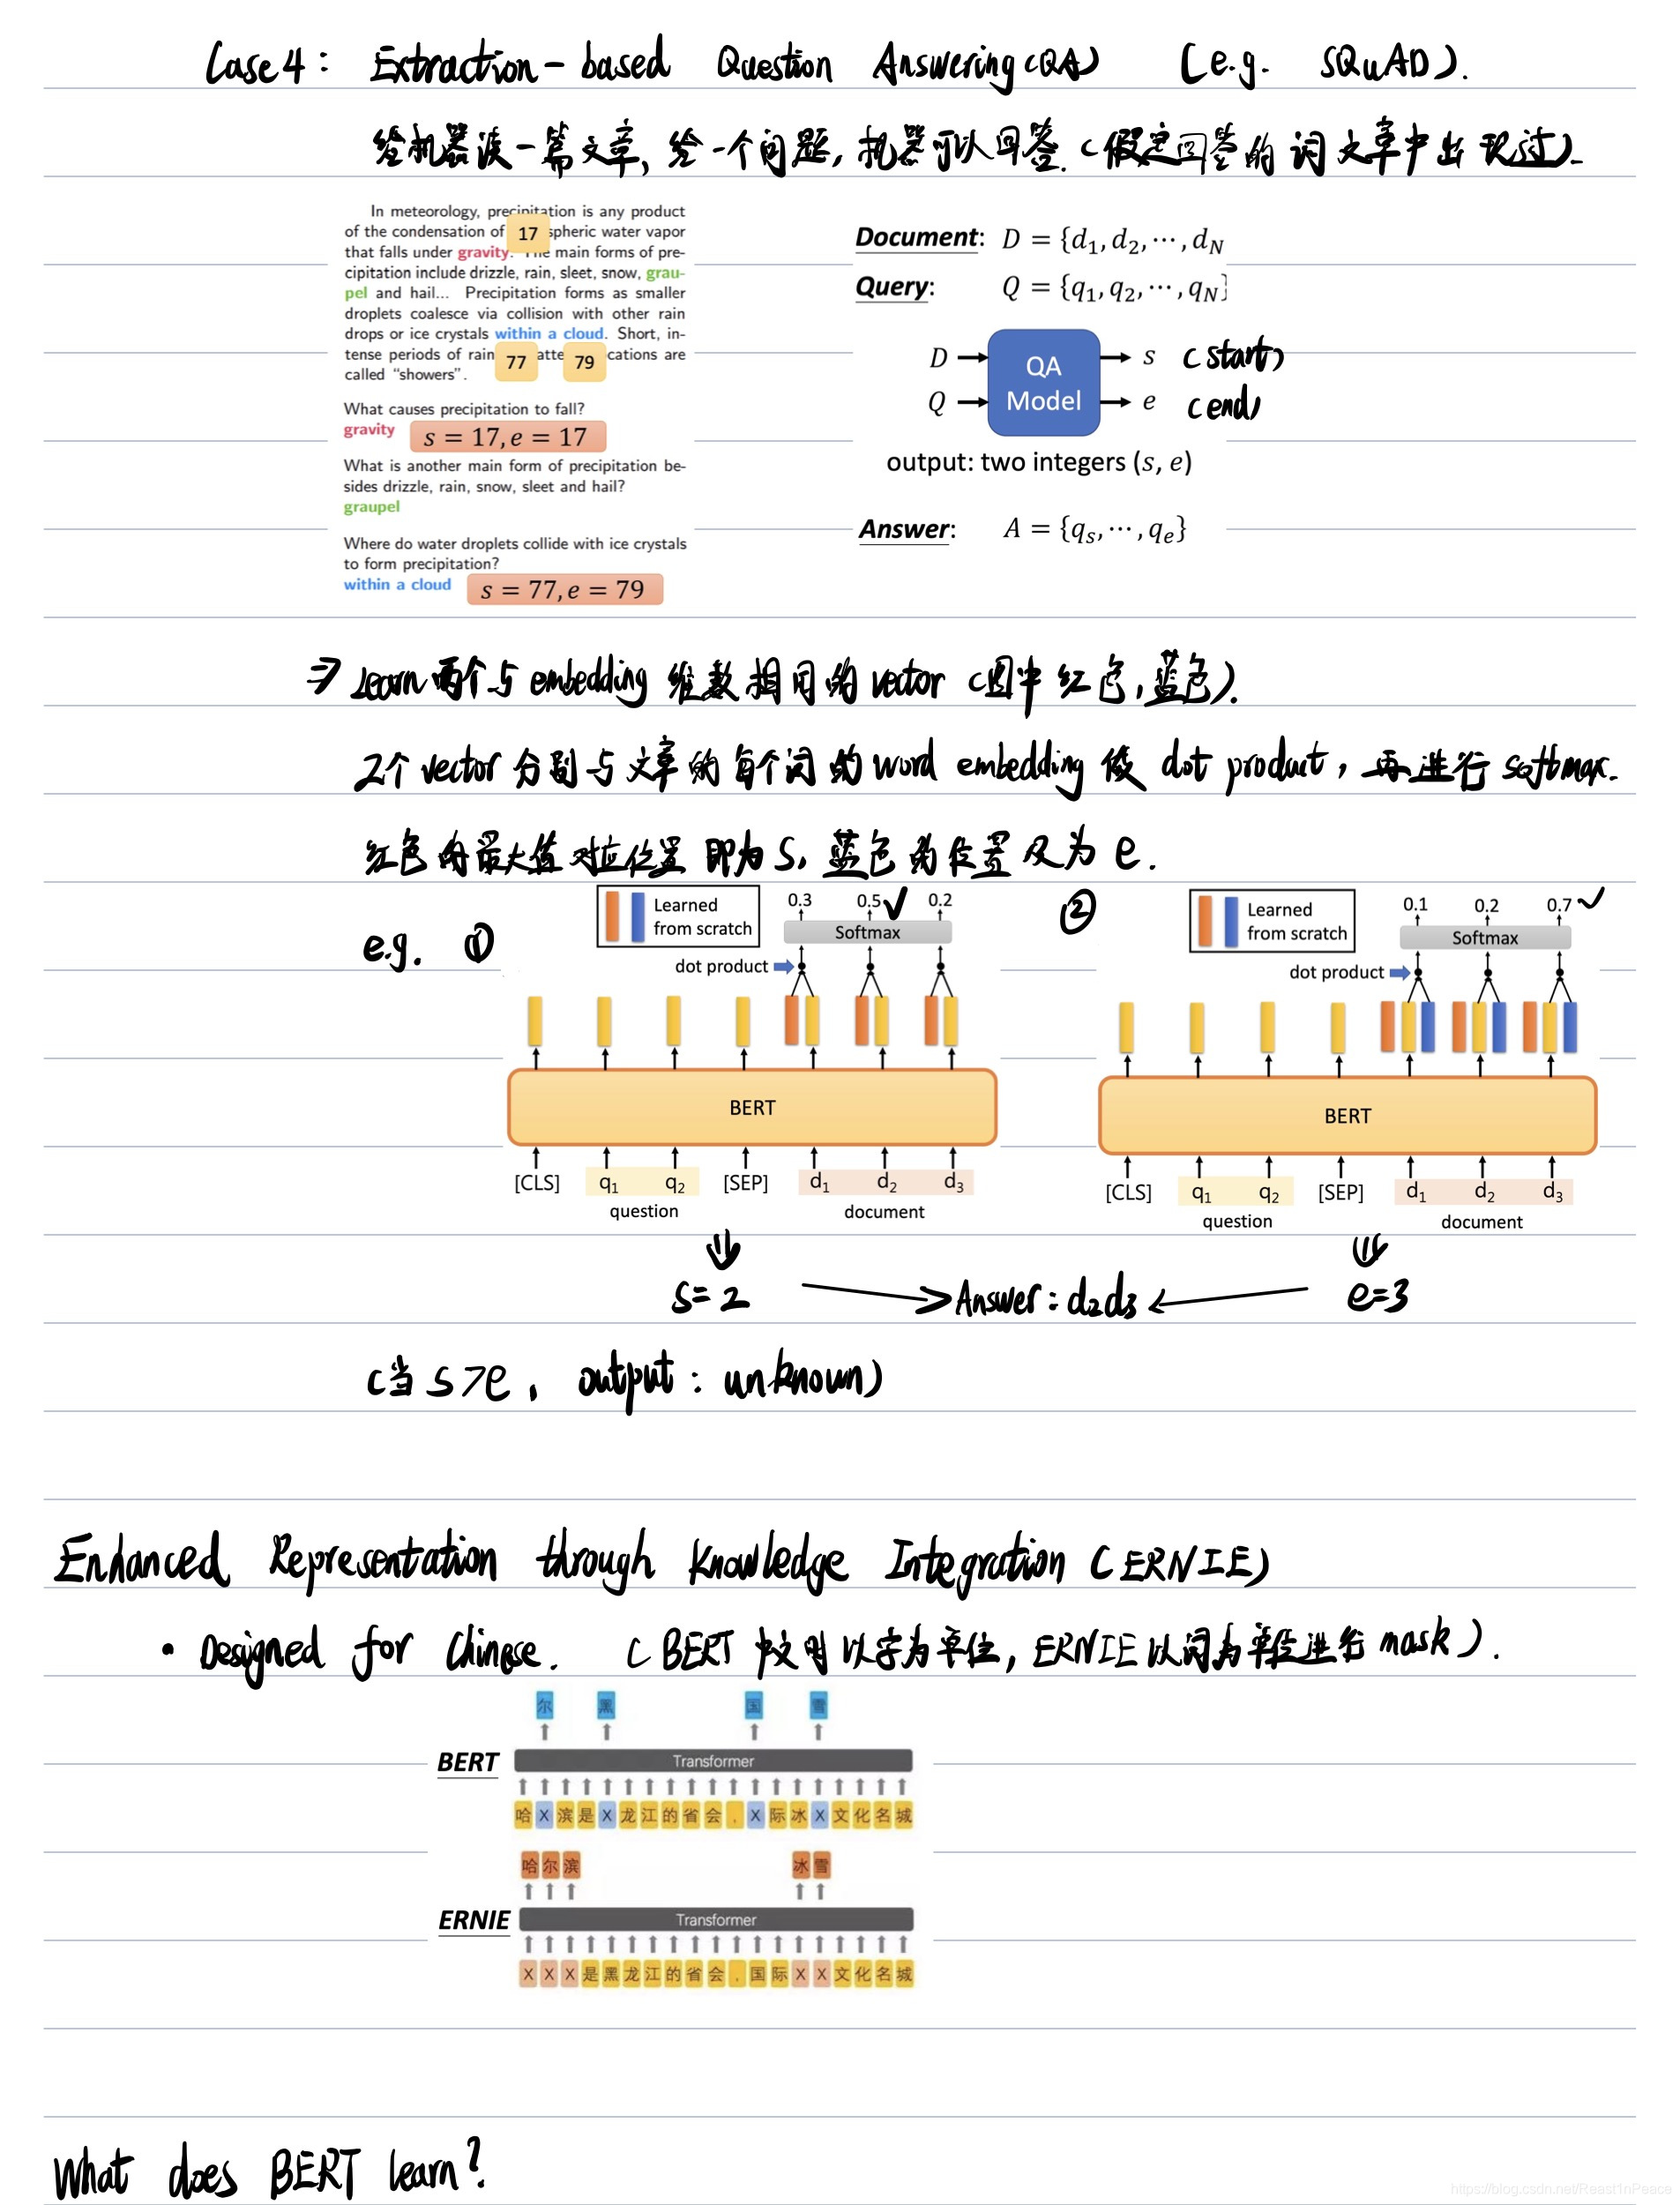 Case 4: Extraction-based Question Answering (QA) (e.g. SQuAD).
给机器读一篇文章, 给一个问题, 机器可以回答. (假定回答的词文章中出现过).
In meteorology, precipitation is any product
of the condensation of 17 spheric water vapor
that falls under gravity. The main forms of pre-
cipitation include drizzle, rain, sleet, snow, grau-
pel and hail... Precipitation forms as smaller
droplets coalesce via collision with other rain
drops or ice crystals within a cloud. Short, in-
tense periods of rain 77 atte 79 cations are
called “showers”.
What causes precipitation to fall?
gravity s = 17, e = 17
What is another main form of precipitation be-
sides drizzle, rain, snow, sleet and hail?
graupel
Where do water droplets collide with ice crystals
to form precipitation?
within a cloud s = 77, e = 79
Document: D = {d1, d2, ⋯, dN
Query: Q = {q1, q2, ⋯, qN}
D QA Model s (start)
Q e (end)
output: two integers (s, e)
Answer: A = {qs, ⋯, qe}
⇒ Learn 两个与 embedding 维数相同的 vector (图中红色, 蓝色).
2个 vector 分别与文章的每个词的 word embedding 做 dot product, 再进行 softmax.
红色的最大值对应位置即为 s, 蓝色的位置及为 e.
e.g. ①
Learned
from scratch
0.3 0.5 ✓ 0.2
Softmax
dot product
BERT
[CLS] q1 q2 [SEP] d1 d2 d3
question document
②
Learned
from scratch
0.1 0.2 0.7 ✓
Softmax
dot product
BERT
[CLS] q1 q2 [SEP] d1 d2 d3
question document
s=2 → Answer: d2d3 ← e=3
(当 s>e, output: unknown)
Enhanced Representation through Knowledge Integration (ERNIE)
• Designed for Chinese. (BERT 中文时以字为单位, ERNIE 以词为单位进行 mask).
尔 黑 国 雪
BERT Transformer
哈 X 滨 是 X 龙 江 的 省 会 , X 际 冰 X 文 化 名 城
哈 尔 滨 冰 雪
ERNIE Transformer
X X X 是 黑 龙 江 的 省 会 , 国 际 X X 文 化 名 城
What does BERT learn?
https://blog.csdn.net/Reast1nPeace